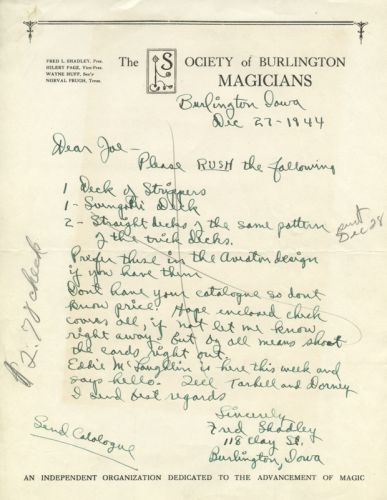 FRED L. SHADLEY, Pres.
HILERY PAGE, Vice-Pres.
WAYNE HUFF, Sec'y
NORVAL PRUGH, Treas.
The SOCIETY of BURLINGTON
MAGICIANS
Burlington Iowa
Dec 27-1944
Dear Joe-
Please RUSH the following
1 Deck of Strippers
1- Svengali Deck
2- Straight decks of the same pattern
of the trick decks.
Prefer these in the Aviator design
if you have them
Dont have your catalogue so dont
know price. Hope enclosed check
covers all, if not let me know
right away. But by all means shoot
the cards right out
Eddie McLaughlin is here this week and
says hello. Tell Tarbell and Dorney
I send best regards
Sincerely
Fred Shadley
118 Clay St.
Burlington, Iowa
Send Catalogue
Dec 28
2.78 check
AN INDEPENDENT ORGANIZATION DEDICATED TO THE ADVANCEMENT OF MAGIC